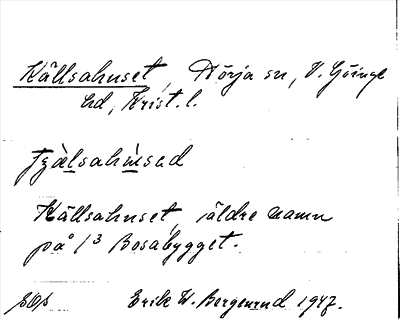 Källsahuset, Nörja sn, V. Göinge
hd, Krist. l.
Källsahuset, äldre namn
på 1³ Bosabygget.
Erik W. Bergenrud 1947.